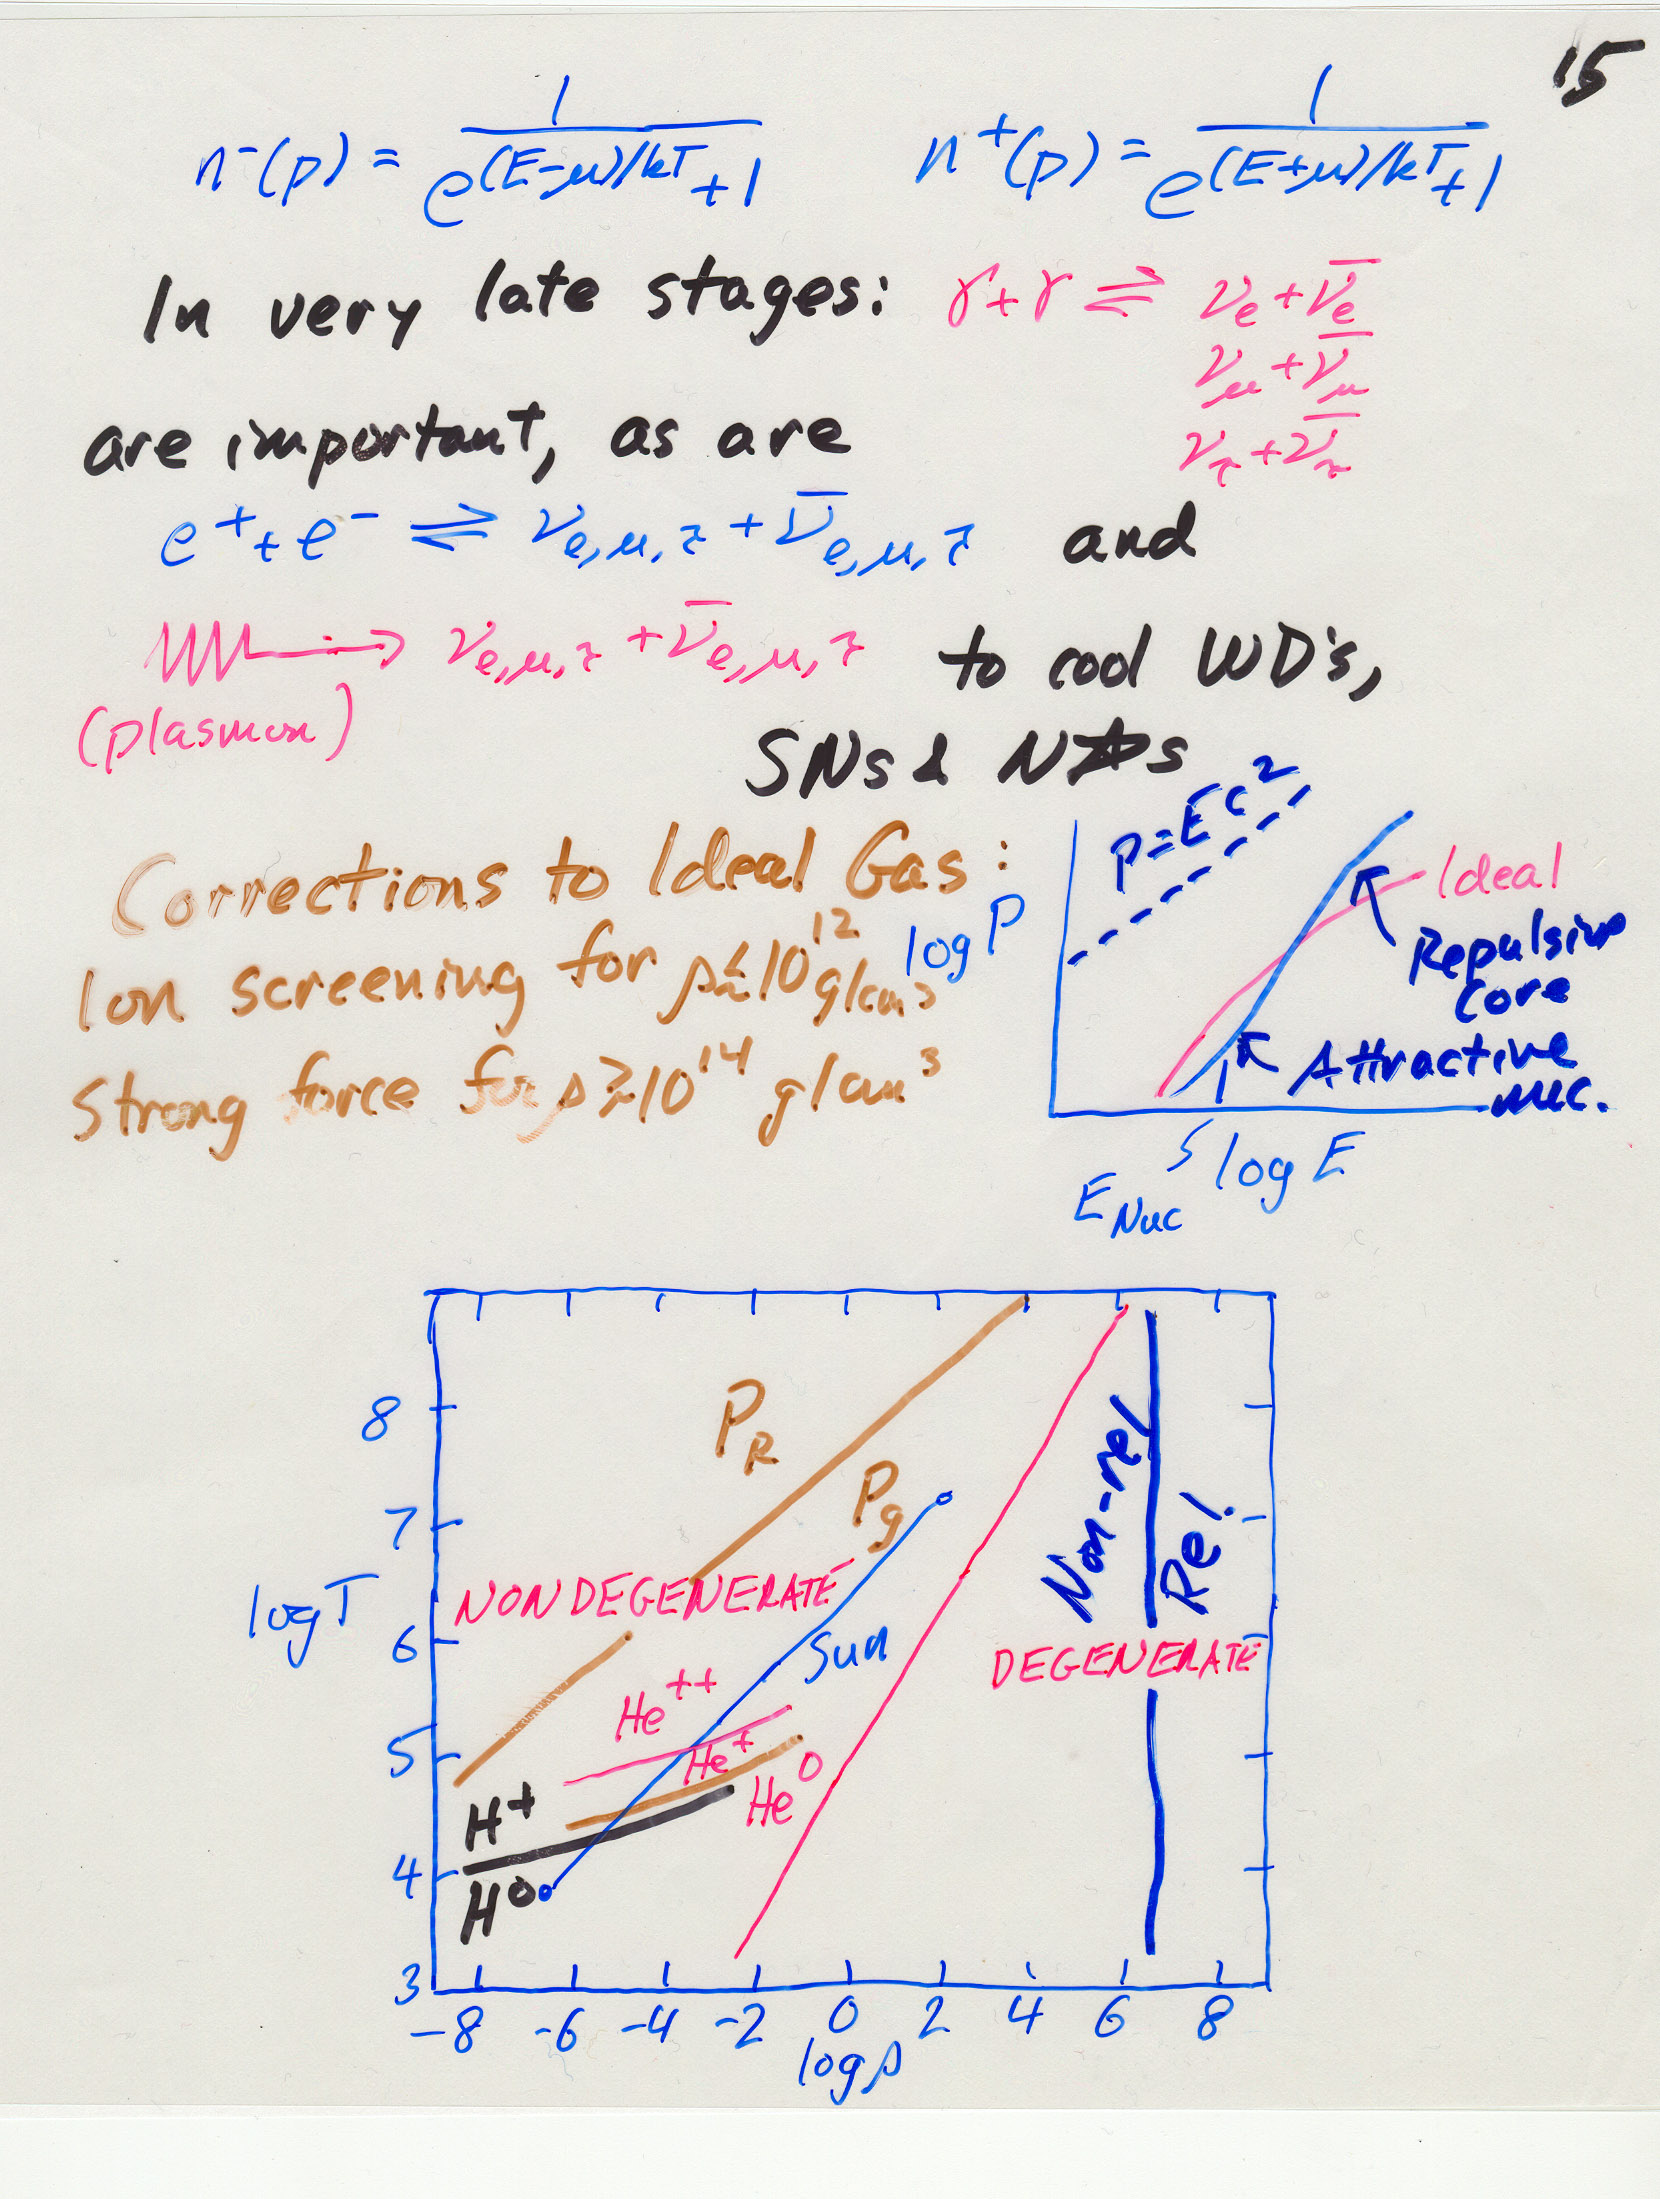 15
n⁻(p) = 1/(e^{(E-μ)/kT}+1)    n⁺(p) = 1/(e^{(E+μ)/kT}+1)
In very late stages: γ+γ ⇌ νe+ν̄e
νμ+ν̄μ
are important, as are ντ+ν̄τ
e⁺+e⁻ ⇌ νe,μ,τ + ν̄e,μ,τ and
→ νe,μ,τ + ν̄e,μ,τ to cool WD's,
(plasmon)
SNs & N★s
Corrections to Ideal Gas:
Ion screening for ρ≲10¹² g/cm³
Strong force for ρ≳10¹⁴ g/cm³
P=Ec²
log P
Ideal
Repulsive
Core
Attractive
nuc.
log E
E Nuc
P_R
8
P_g
Non-rel
Rel.
7
NONDEGENERATE
log T
6
Sun
DEGENERATE
He⁺⁺
5
He⁺
He⁰
H⁺
4
H⁰
3
-8 -6 -4 -2 0 2 4 6 8
log ρ